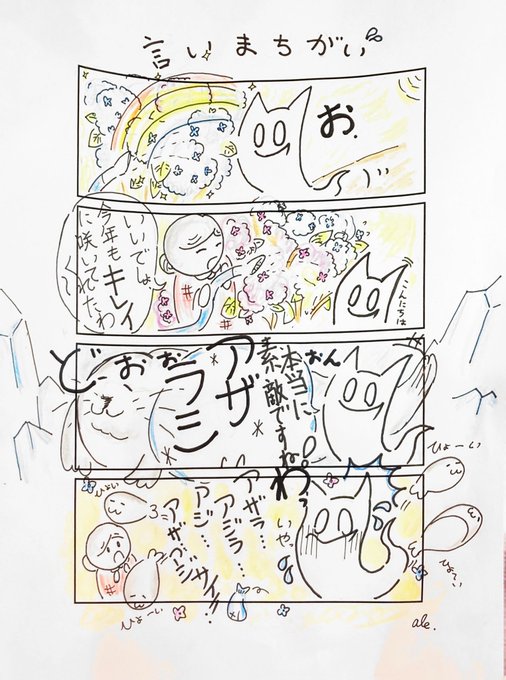 言いまちがい
お.
こんにちは
いいでしょ
今年もキレイ
に咲いてくれたわ
本当に、
素敵ですね!
アザ
ラシ
どおおおん
わっ
いや、
アザラ…
アジラ…
アジ…
ひょーい
ひょい
ひょーい
ale.